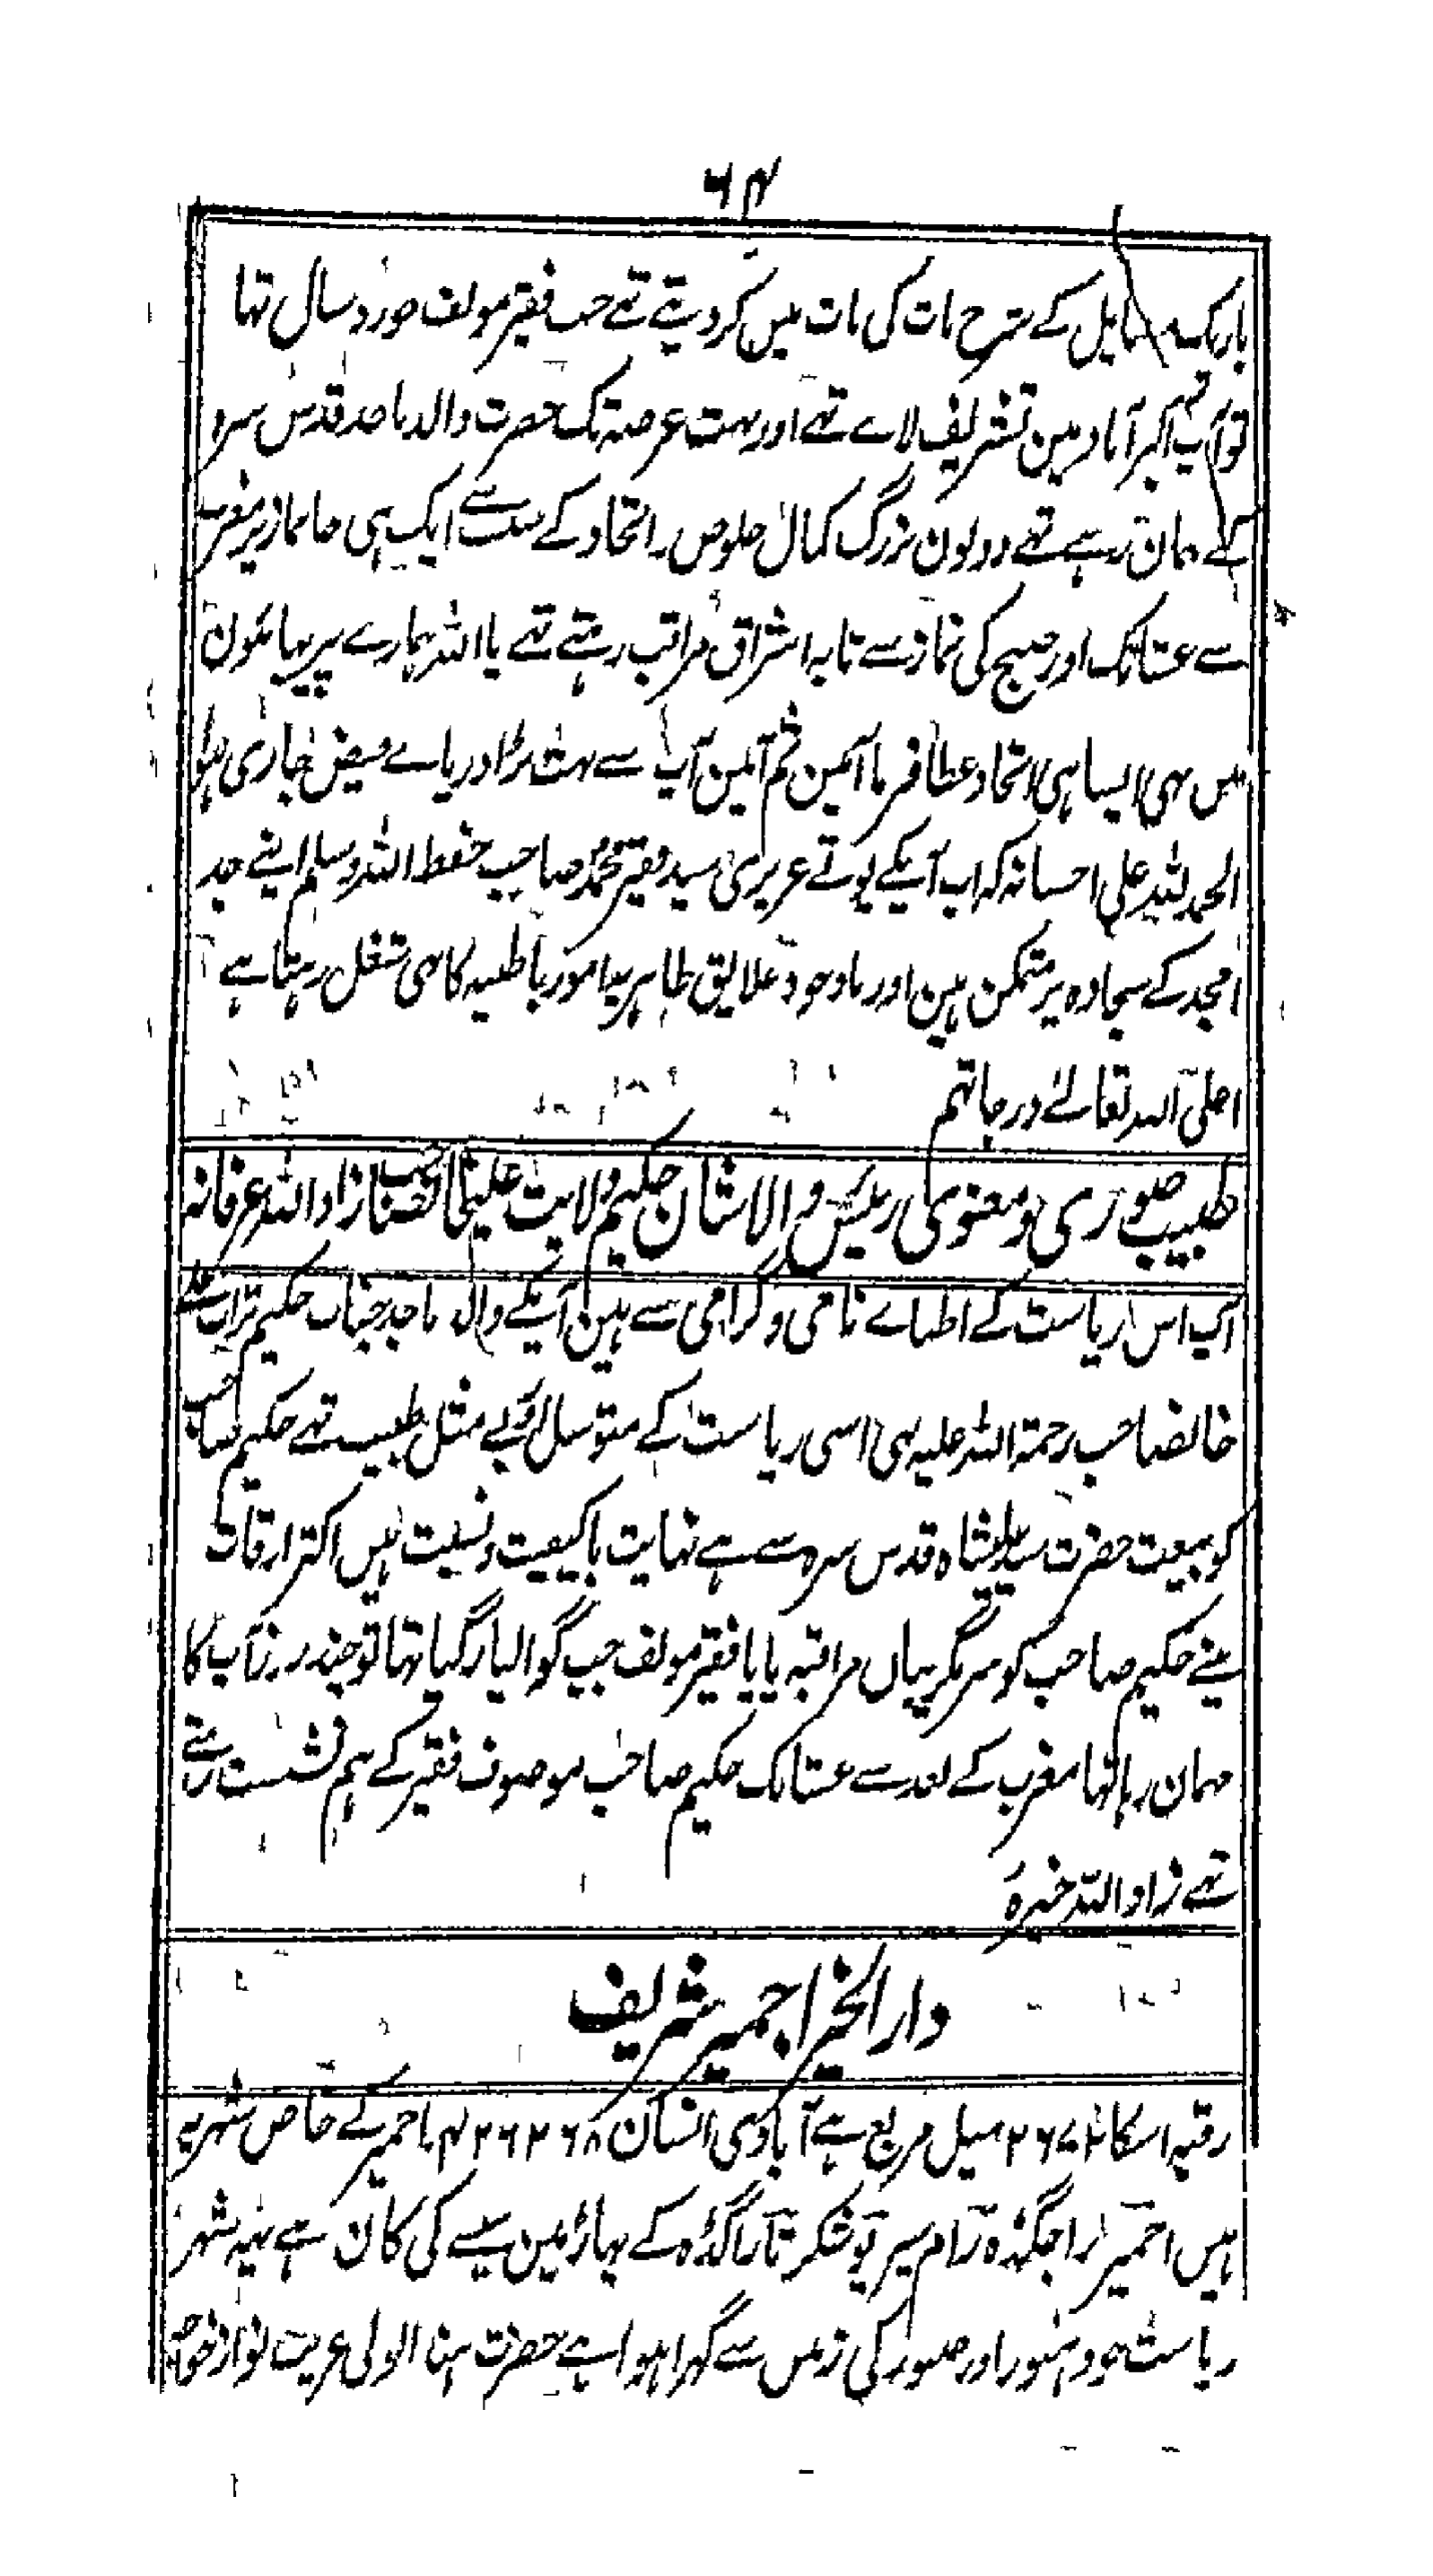 ۶۴
باریک مسایل کے شرح بات کی بات میں کر دیتے تھے جب فقیر مولف خورد سال تہا
تو آپ اکبر آباد مین تشریف لاے تھے اور بہت عرصہ تک حضرت والد ماجد قدس سرہ
کے مہان رہے تھے دونون بزرگ کمال خلوص و اتحاد کے سبب سے ایک ہی جانماز پر مغرب
سے عشا تک اور صبح کی نماز سے تا بہ اشراق مراقب رہتے تھے یا اللہ ہمارے پیر بہائیون
میں بہی ایسا ہی اتحاد عطا فرما آمین ثم آمین آپ سے بہت بڑا دریاے فیض جاری ہوا
الحمد للہ علی احسانہ کہ اب آپکے پوتے عزیزی سید فقیر محمد صاحب حفظ اللہ وسلم اپنے جد
امجد کے سجادہ پر متمکن ہین اور باوجود علایق ظاہریہ امور باطنیہ کا بہی شغل رہتا ہے
اعلی اللہ تعالےٰ درجاتہم
طبیب صوری و معنوی رئیس والاشان حکیم ولایت علیخانصاحب زاد اللہ عرفانہ
آپ اس ریاست کے اطباے نامی و گرامی سے ہین آپکے والد ماجد جناب حکیم تراب علی
خانصاحب رحمۃ اللہ علیہ بہی اسی ریاست کے متوسل و بے مثل طبیب تھے حکیم صاحب
کو بیعت حضرت سید قدس سرہ سے ہے نہایت با کیفیت و نسبت ہیں اکثر اوقات
مینے حکیم صاحب کو سر بگریباں مراقبہ پایا فقیر مولف جب گوالیار گیا تہا تو چند روز آپ کا
مہمان رہا تہا مغرب کے بعد سے عشا تک حکیم صاحب موصوف فقیر کے ہم نشست رہتے
تھے زاد اللہ خیرہ
دار الخیر اجمیر شریف
رقبہ اسکا میل مربع ہے آبادی انسان اجمیر کے خاص شہر یہ
ہیں اجمیر راجگڈہ رام سیر پوشکر تاراگڈہ کے پہاڑ مین سیسے کی کان ہے یہ شہر
ریاست جودہپور اور کی زمیں سے گہرا ہوا ہے حضرت ہند الولی غریب نواز خواجہ